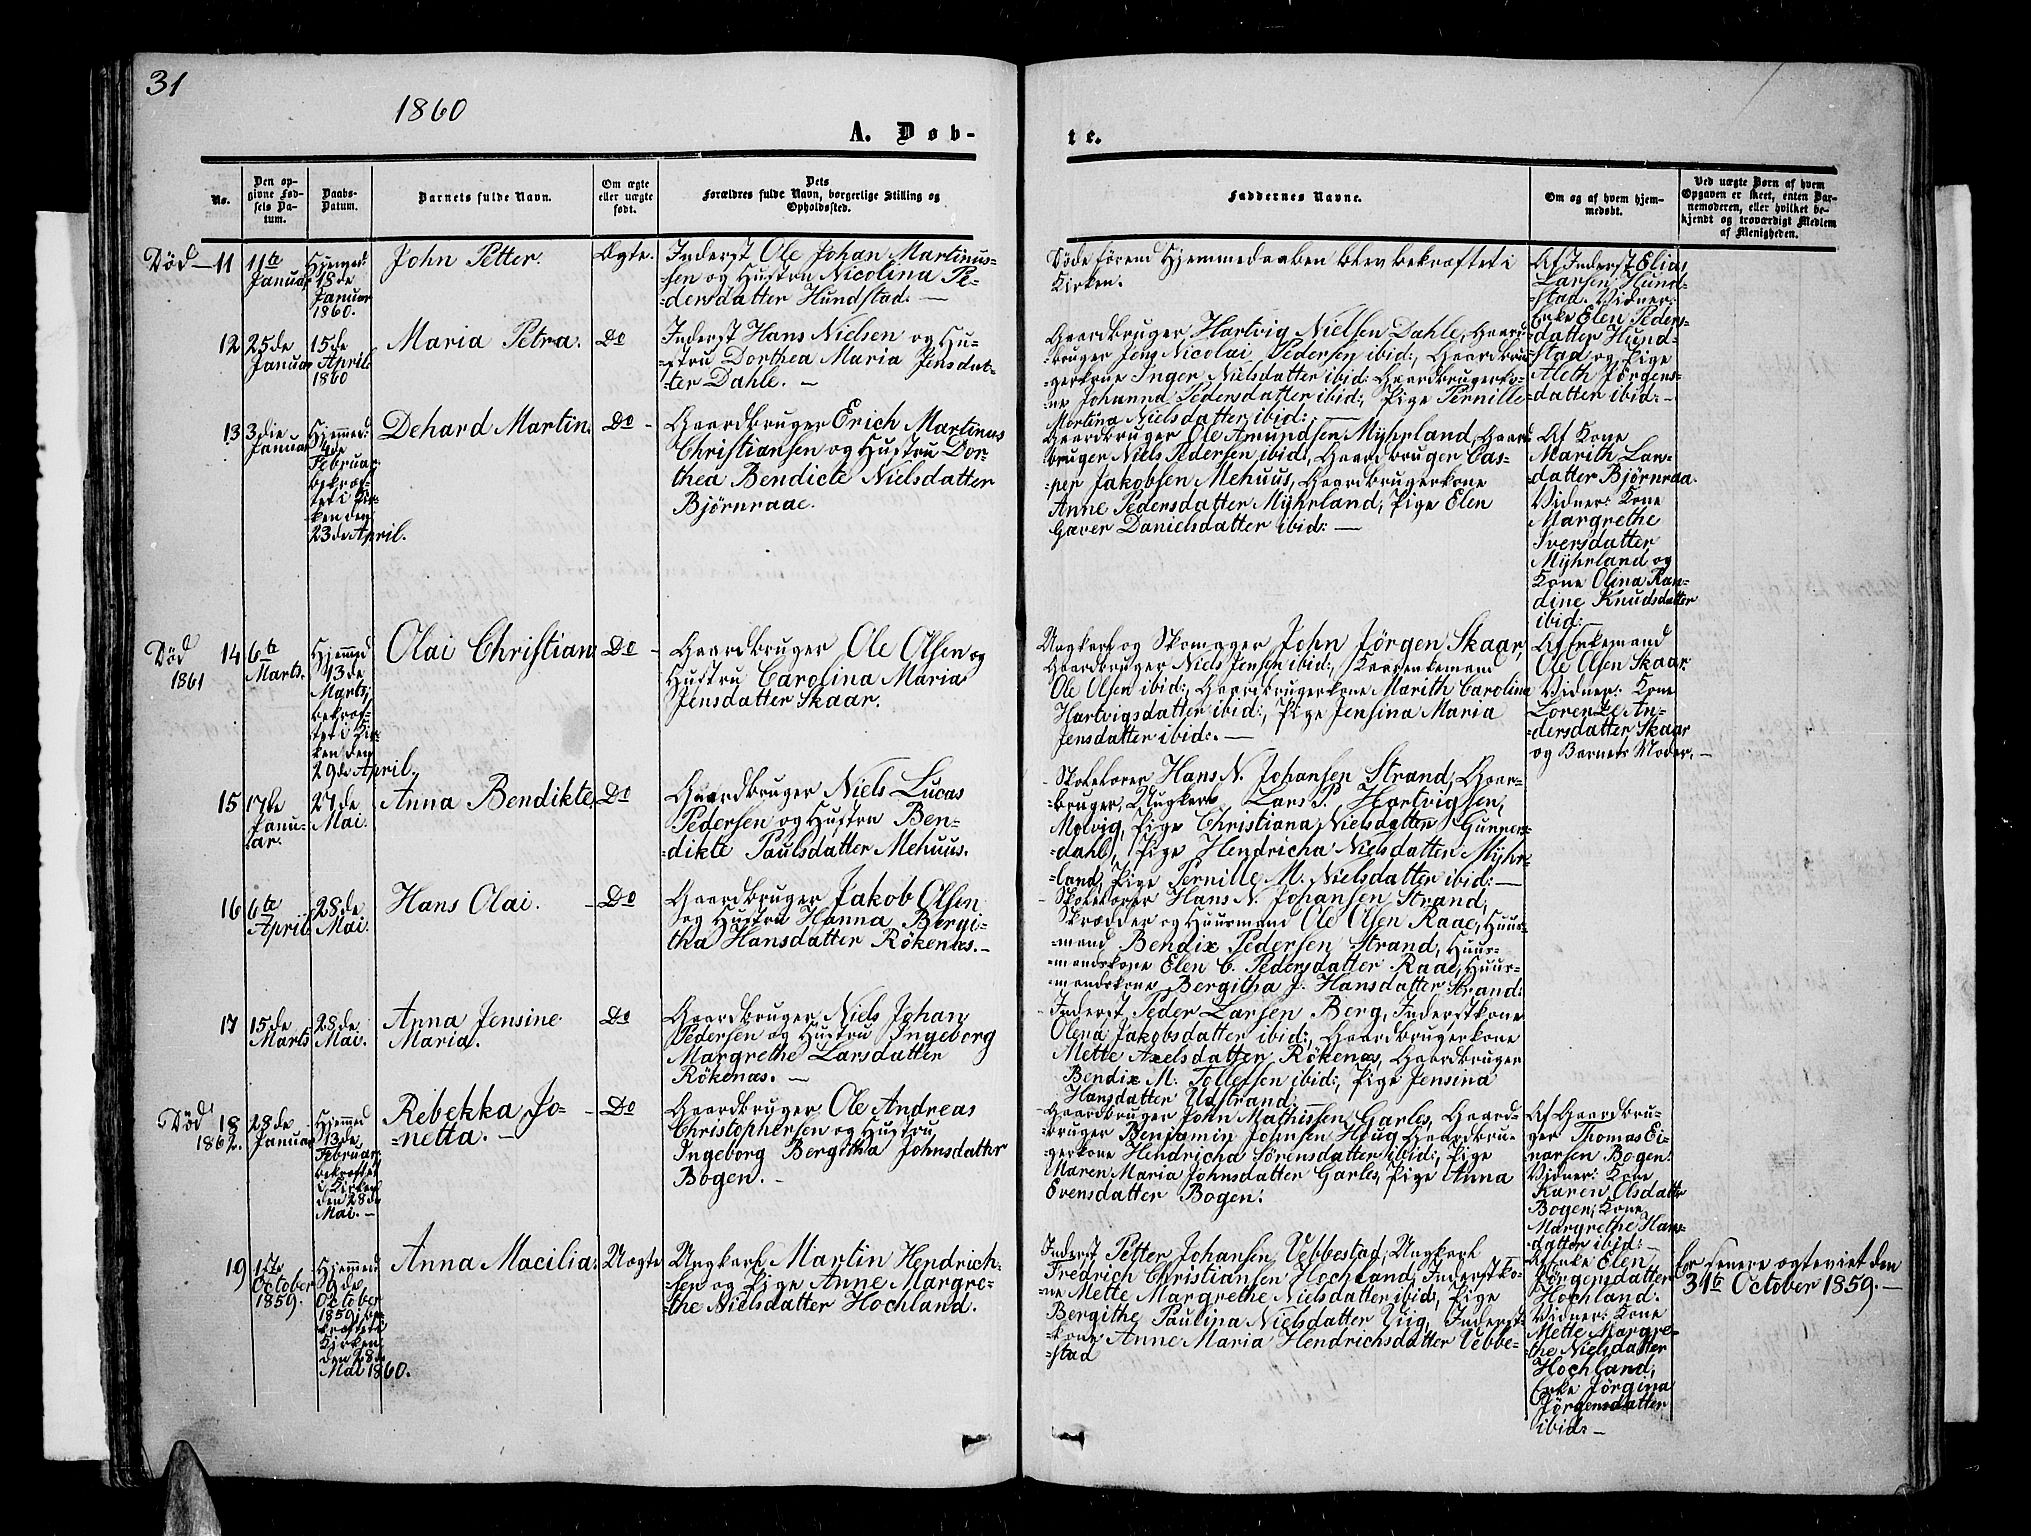 31
1860
A. Døb-
te.
No.
Den op-
givne Fød-
sels Da-
tum.
Daabs-
Datum.
Barnets fulde Navn.
Om ægte
eller uægte
født.
Dets
Forældres fulde Navn, borgerlige Stilling og
Opholdssted.
Faddernes Navne.
Om og af hvem hjem-
medøbt.
Ved uægte Børn af hvem
Opgaven er skeet, enten Bar-
nemoderen, eller hvilket be-
kjendt og troværdigt Medlem
af Menigheden.
Død - 11
11te
Januar
Hjemmed:
18de
Januar
1860.
John Petter.
Ægte.
Inderst Ole Johan Martinus-
sen og Hustru Nicolina Pe-
=dersdatter Hundstad. —
Døde förend Hjemmedaaben blev bekræftet i
Kirken.
Af Inderst Elias
Larsen Hund-
=stad. Vidner:
Enke Elen Peders-
=datter Hund-
=stad og Pige
Aleth Jørgens-
=datter ibid: -
12
25de
Januar
15de
April
1860
Maria Petra.
Do
Inderst Hans Nielsen og Hu-
=stru Dorthea Maria Jensdat-
ter Dahle. —
Gaardbruger Hartvig Nielsen Dahle, Gaard-
=bruger Jens Nicolai Pedersen ibid:, Gaardbru-
=gerkone Inger Nielsdatter ibid: Gaardbrugerko-
=ne Johanna Pedersdatter ibid:, Pige Pernille
Martina Nielsdatter ibid: —
13
3die
Januar
Hjemmed:
4de
Februar
bekræf-
tet i Kir-
ken den
23de April.
Dehard Martin.
Do -
Gaardbruger Erich Martinus
Christiansen og Hustru Dor-
thea Bendicte Nielsdatter
Bjørnraae.
Gaardbruger Ole Amundsen Myhrland, Gaard-
bruger Niels Pedersen ibid, Gaardbruger Cas-
=per Jakobsen Mehuus, Gaardbrugerkone
Anne Pedersdatter Myhrland, Pige Elen
Gaver Danielsdatter ibid: —
Af Kone
Marith Lars-
datter Bjørnraa.
Vidner: Kone
Margrethe
Iversdatter
Myhrland og
Kone Olina Ran-
dine Knudsdatter
ibid:
Død
1861
14
6te
Marts.
Hjemmed
13de
Marts,
bekræf-
tet i Kir-
ken den
29de April.
Olai Christian
Do -
Gaardbruger Ole Olsen og
Hustru Carolina Maria
Jensdatter Skaar.
Ungkarl og Skomager John Jörgen Skaar,
Gaardbruger Niels Jensen ibid:, Kaarenkemand
Ole Olsen ibid:, Gaardbrugerkone Marith Carolina
Hartvigsdatter ibid:, Pige Jensina Maria
Jensdatter ibid:. —
Af Enkemand
Ole Olsen Skaar
Vidner: Kone
Lorentze An-
=dersdatter Skaar
og Barnets Moder. —
15
17de
Janu-
ar.
27de
Mai.
Anna Bendikte
Do
Gaardbruger Niels Lucas
Pedersen og Hustru Ben-
=dikte Paulsdatter Mehuus.
Skolelærer Hans N. Johansen Strand, Gaar-
=bruger, Ungkarl Lars P. Hartvigsen,
Molvig, Pige Christiana Nielsdatter Gunner-
=dahl, Pige Hendricha Nielsdatter Myhr-
=land, Pige Pernille M. Nielsdatter ibid: —
16
6te
April
28de
Mai.
Hans Olai.
- Do
Gaardbruger Jakob Olsen
og Hustru Hanna Bergi-
tha Hansdatter Rökenæs. -
- Skolelærer Hans N. Johansen Strand,
Skrædder og Huusmand Ole Olsen Raae, Huus-
=mand Bendix Pedersen Strand, Huus-
=mandskone Elen C. Pedersdatter Raae, Huus-
=mandskone Bergitha J. Hansdatter Strand:
17
15de
Marts
28de
Mai.
Anna Jensine
Maria.
Do
Gaardbruger Niels Johan
Pedersen og Hustru Ingeborg
Margrethe Larsdatter
Rökenæs. —
Inderst Peder Larsen Berg, Inderstkone
Olena Jakobsdatter ibid:, Gaardbrugerkone
Mette Axelsdatter Rökenæs, Gaardbruger
Bendix M. Tollefsen ibid:, Pige Jensina
Hansdatter Udstrand.
Død
1862.
18
28de
Januar
Hjemmed
13de
Februar
bekræftet
i Kirken
den 28de
Mai. —
Rebekka Jo-
=netta. —
- Do
Gaardbruger Ole Andreas
Christophersen og Hustru
Ingeborg Bergitha Johnsdatter
Bogen. -
Gaardbruger John Mathissen Garles, Gaard-
bruger Benjamin Johnsen Haug Gaardbru-
gerkone Hendricha Sörensdatter ibid:, Pige
Maren Maria Johnsdatter Garles, Pige Anna
Evensdatter Bogen:
Af Gaardbru-
ger Thomas Ei-
narsen Bogen.
Vidner: Kone
Karen Olsdatter
Bogen, Kone
Margrethe Hans-
datter ibid: —
19
1ste
October
1859.
Hjemmed
9de
October
1859, be-
kræftet i
Kirken
den 28de
Mai 1860.
Anna Macilia.
Uægte
Ungkarl Martin Hendrich-
sen og Pige Anne Margre-
the Nielsdatter Hochland.
Inderst Petter Johansen Vebbestad, Ungkarl
Fredrich Christiansen Hochland, Inderstko-
=ne Mette Margrethe Nielsdatter ibid:, Pige
Bergithe Paulina Nielsdatter Viig, Inderst-
=kone Anne Maria Hendrichsdatter Vebbe-
=stad
Af Enke Elen
Jörgensdatter
Hochland.
Vidner: Kone
Mette Margre-
the Nielsdatter
Hochland,
Enke Jörgina
Jörgensdatter
ibid: —
er senere ægteviet den
31te October 1859. —